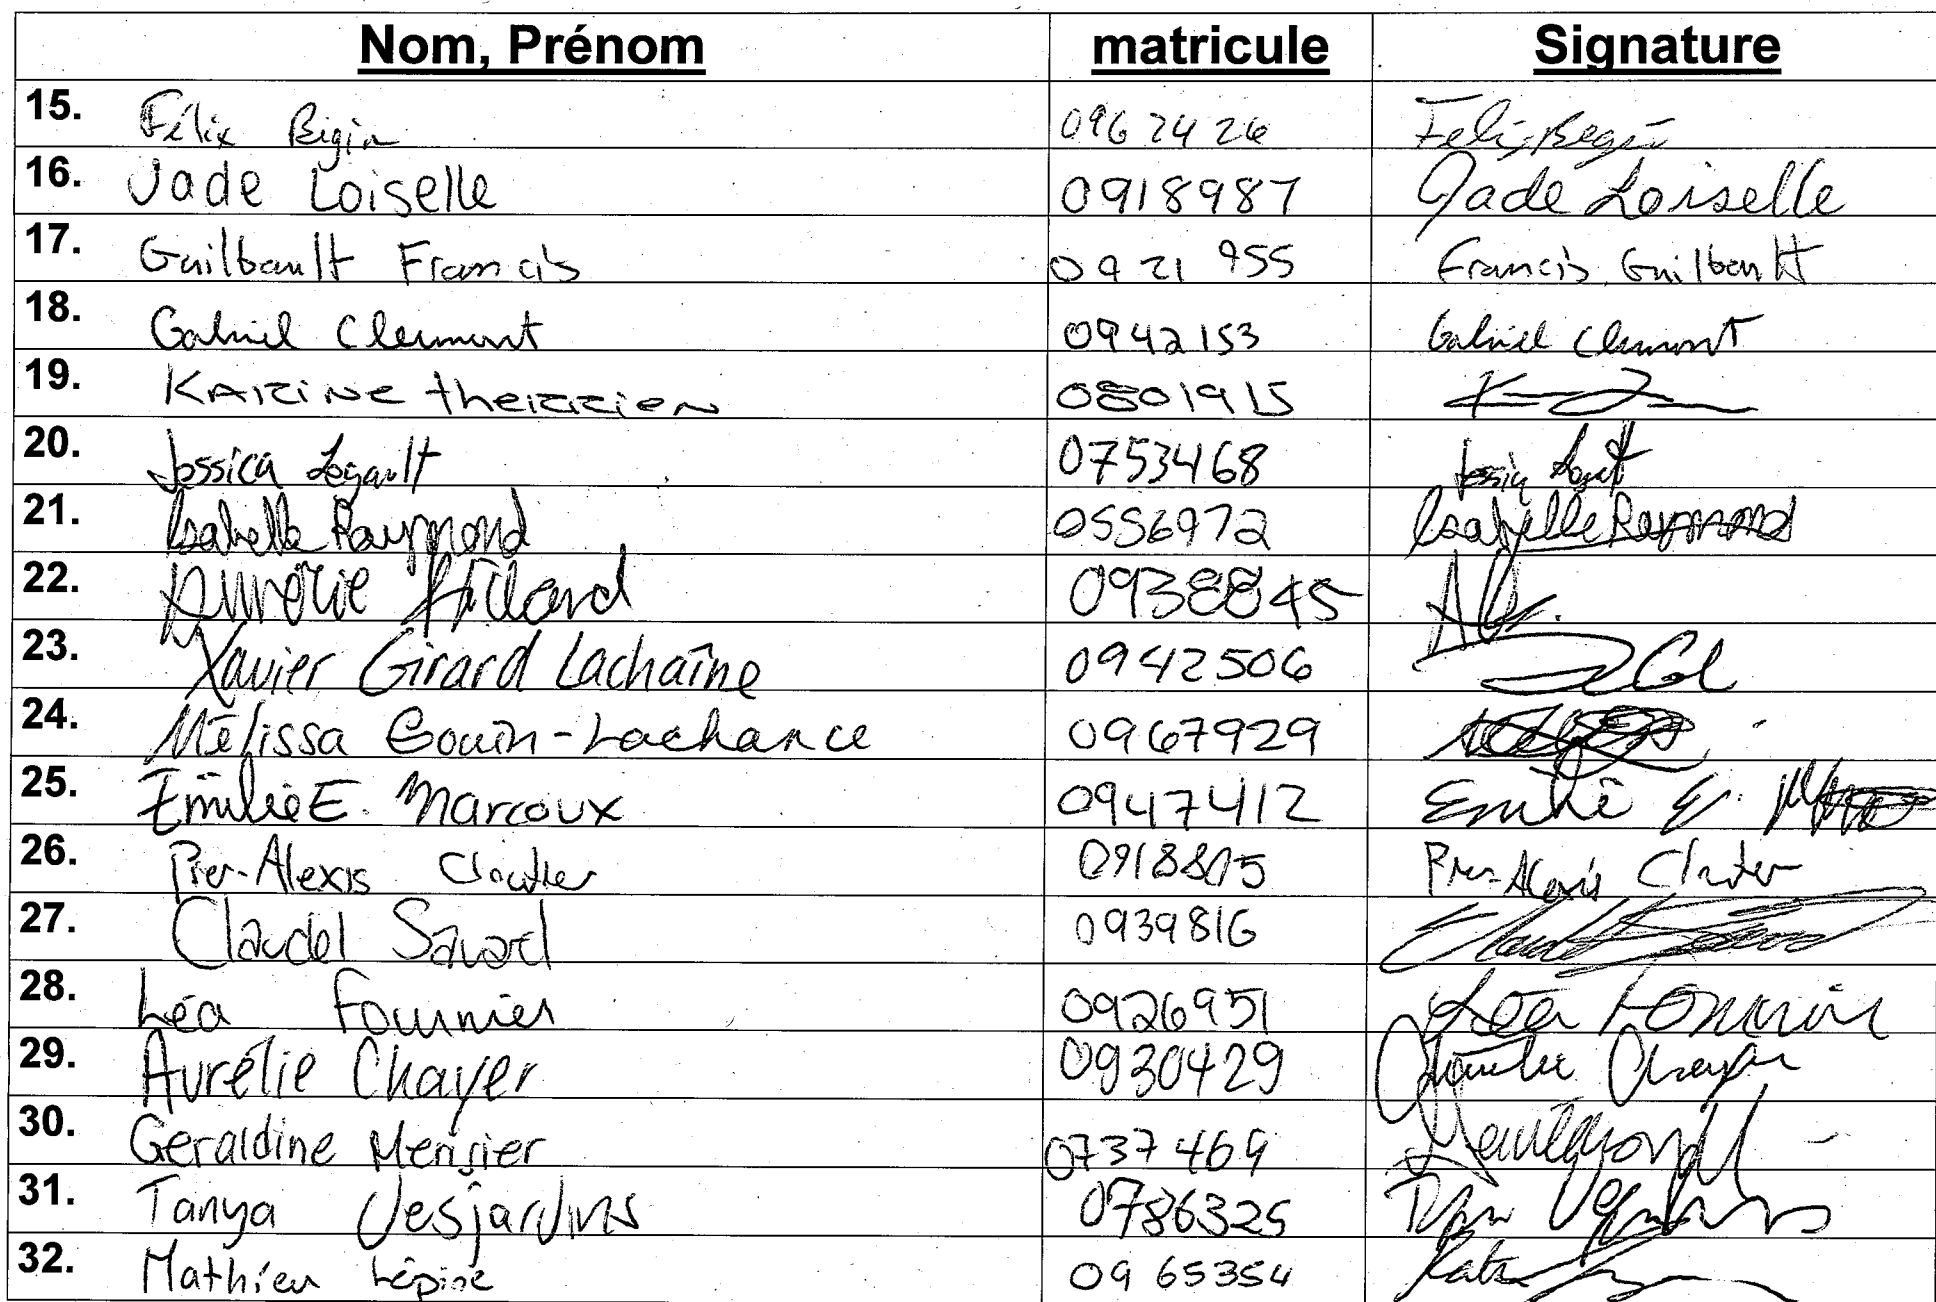 Nom, Prénom matricule Signature
15. Félix Bégin 0962426 Félix Bégin
16. Jade Loiselle 0918987 Jade Loiselle
17. Guilbault Francis 0921955 Francis Guilbault
18. Gabriel Clermont 0942153 Gabriel Clermont
19. KARINE therrien 0801915
20. Jessica Legault 0753468
21. Isabelle Raymond 0556972 Isabelle Raymond
22. Aurélie 0938845
23. Xavier Girard Lachaîne 0942506
24. Mélissa Gouin-Lachance 0967929
25. Émilie E. Marcoux 0947412 Emilie E.
26. Pier-Alexis Cloutier 0918805 Pier-Alexis Cloutier
27. Claudel Savard 0939816 Claudel Savard
28. Léa Fournier 0926951 Léa Fournier
29. Aurélie Chayer 0930429 Aurélie Chayer
30. Geraldine Mensier 0737469
31. Tanya Desjardins 0786325
32. Mathieu Lépine 0965354